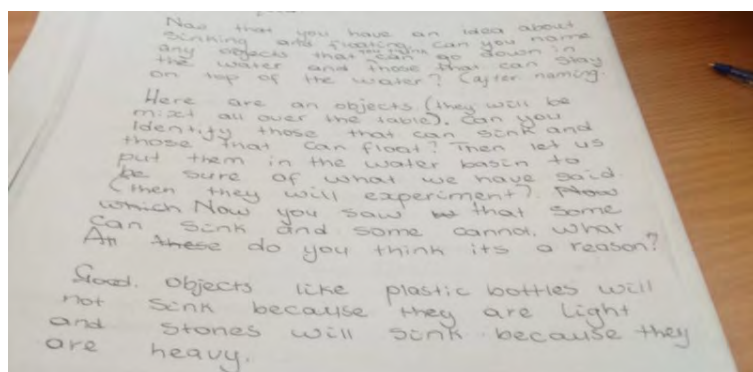 Now that you have an idea about
sinking and floating, can you name
any objects that can go down in
the water and those that can stay
on top of the water? (after naming.
Here are an objects (they will be
mixt all over the table). Can you
identify those that can sink and
those that can float? Then let us
put them in the water basin to
be sure of what we have said
(then they will experiment). Now
which Now you saw that some
can sink and some cannot. What
An these do you think its a reason?
Good. Objects like plastic bottles will
not sink because they are light
and stones will sink because they
are heavy.